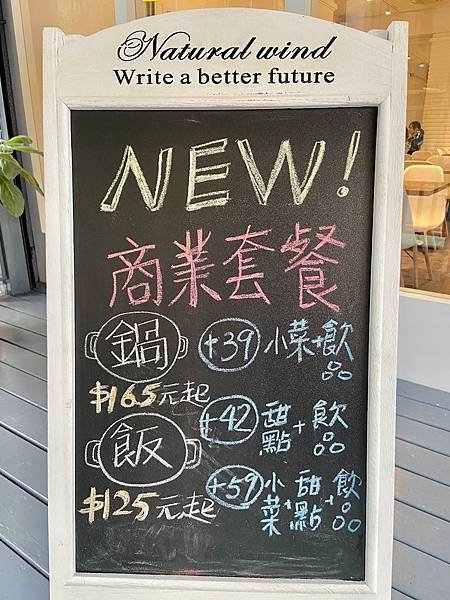 Natural wind
Write a better future
NEW!
商業套餐
鍋
$165元起
飯
$125元起
+39 小菜+飲品
+42 甜點+飲品
+59 小菜+甜點+飲品